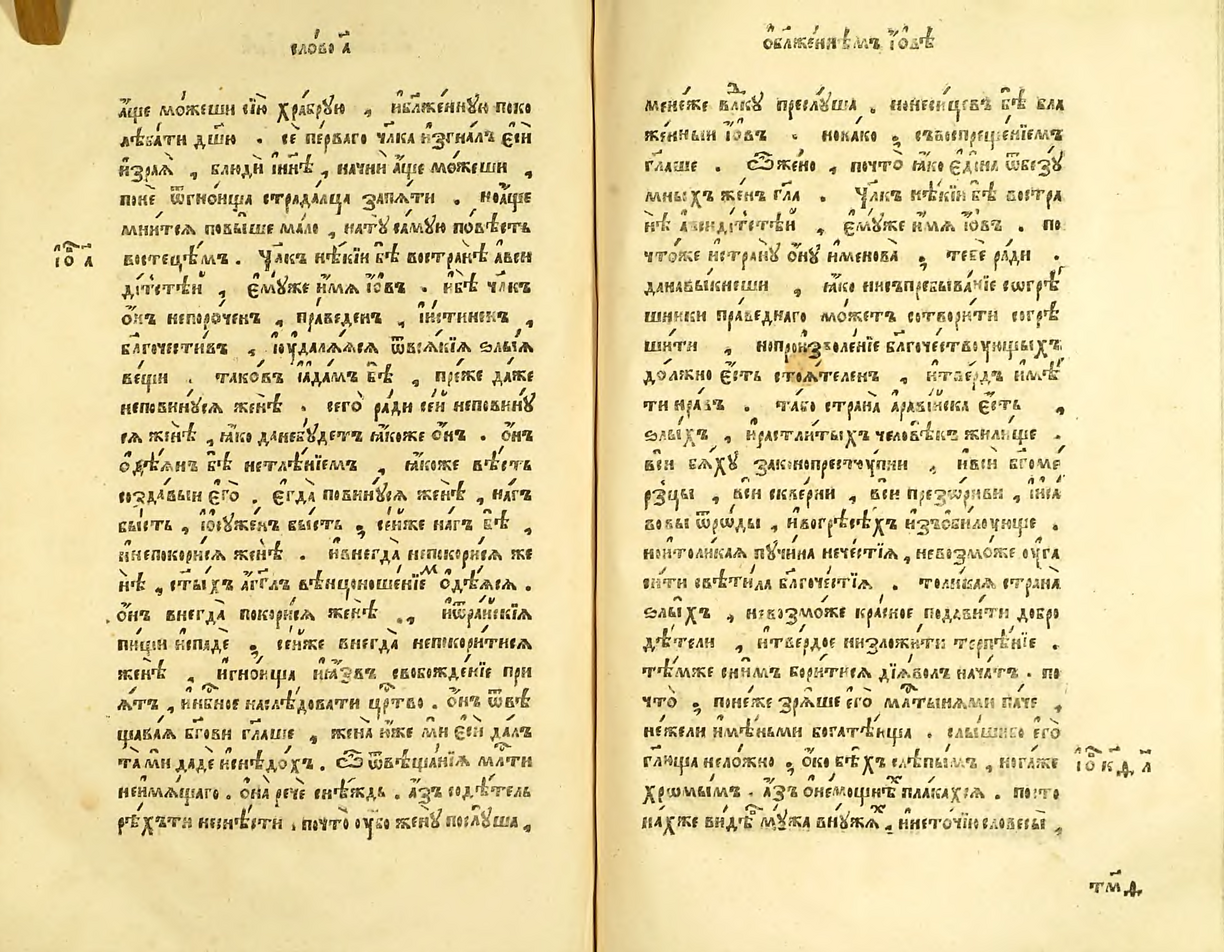 сло́во а҃
а҆́ще мо́жеши сїю̀ хра́брꙋю , и҆бл҃же́ннꙋю поко
лѣба́ти дш҃ю . сѐ пе́рваго чл҃ка и҆згна́лъ є҆сѝ
и҆зра́ѧ , блюдѝ и҆нн҃ѣ , начнѝ а҆́ще мо́жеши ,
понѐ ѿгно́ища страда́лца запѧ́ти . ноа҆́ще
мни́тсѧ повы́ше ма́ло , натꙋ̀ са́мꙋю по́вѣсть
і҆ѡ҃ а҃
востеце́мъ . Чл҃къ нѣ́кїи бѣ̀ востранѣ̀ а҆вси
ді́тстѣй , є҆мꙋ́же и҆́мѧ і҆́овъ . и҆бѣ̀ чл҃къ
о҆́нъ непоро́ченъ , пра́веденъ , и҆и́стиненъ ,
бл҃гочести́въ , і҆оу҆далѧ́ѧсѧ ѿвсѧ́кїѧ ѕлы́ѧ
ве́щи . тако́въ і҆а҆да́мъ бѣ̀ , пре́же да́же
неповинꙋ́сѧ женѣ̀ . сего̀ ра́ди се́й неповинꙋ́
сѧ женѣ̀ , ꙗ҆́ко данебꙋ́детъ ꙗ҆́коже о҆́нъ . о҆́нъ
о҆дѣ́ѧнъ бѣ̀ нетлѣ́нїемъ , ꙗ҆́коже вѣ́сть
созда́выи є҆го̀ . є҆гда̀ повинꙋ́сѧ женѣ̀ , на́гъ
бы́сть , і҆ѡ҆сꙋже́нъ бысть , се́йже на́гъ бѣ̀ ,
и҆непокори́сѧ женѣ̀ . и҆внегда̀ непокори́сѧ же
нѣ̀ , ст҃ы́хъ а҆́гг҃лъ вѣнценоше́нїемъ о҆дѣ́ѧсѧ .
о҆́нъ внегда̀ покори́сѧ женѣ̀ , и҆ѿра́йскїѧ
пи́щи и҆спадѐ , се́йже внегда̀ непокори́тисѧ
женѣ̀ , и҆гно́ища и҆ꙗ҆́звъ свобожде́нїе при
ѧ́тъ , и҆нб҃ное наслѣ́довати цр҃тво . о҆́нъ ѿвѣ
ща́ваѧ бг҃ови гл҃аше , жена̀ ю҆́же мѝ є҆сѝ да́лъ
та́ми дадѐ и҆снѣ́дохъ . Ѽ ѿвѣща́нїѧ мл҃ти
неи҆мѧ́щаго . ѻ҆на̀ речѐ снѣ́ждь . а҆́зъ содѣ́тель
рѣ́хъти неꙗ҆́сти , почто̀ оу҆́бо женꙋ̀ послꙋ́ша ,
о҆бл҃же́ннѣмъ і҆́овѣ
мене́же влⷣкꙋ преслꙋ́ша . нонеси́цевъ бѣ̀ бла
же́нныи і҆́овъ . нока́ко , съвоспреще́нїемъ
гл҃аше . Ѽже́но , почто̀ ꙗ҆́ко є҆ди́на ѿбезꙋ́
мныхъ же́нъ гл҃а . Чл҃къ нѣ́кїи бѣ̀ востра
нѣ̀ а҆всиді́тстѣй , є҆мꙋ́же и҆́мѧ і҆́овъ . по
что́же и҆странꙋ̀ о҆́нꙋ и҆менова̀ , тебѐ ра́ди .
данавы́кнеши , ꙗ҆́ко нисъпребыва́нїе согрѣ́
шники пра́веднаго мо́жетъ сотвори́ти согрѣ
ши́ти , нопроизволе́нїе бл҃гоче́ствоующыхъ
до́лжно є҆́сть стоѧ́теленъ , и҆тве́рдъ и҆мѣ́
ти нра́въ . та́бо страна̀ ара́вїйска є҆́сть ,
ѕлы́хъ , и҆растли́тыхъ человѣ́къ жили́ще .
всѝ бѧ́хꙋ законопрестꙋ́пни , и҆всѝ бг҃оме́
рзцы , всѝ скве́рни , всѝ презѡ́риви , і҆и҆са́
вовы ѿрѡ́ды , и҆вогрѣсѣ́хъ и҆зъоби́лоующе .
нои҆толи́каѧ пꙋчи́на нече́стїѧ , невозмо́же оу҆га
си́ти свѣти́ла бл҃гоче́стїѧ . толи́каѧ страна̀
ѕлы́хъ , невозмо́же кра́сное подави́ти добро
дѣ́тели , и҆тве́рдое низложи́ти терпѣ́нїе .
тѣ́мже сни́мъ бори́тисѧ дїѧ́волъ нача́тъ . по
что̀ , поне́же зрѧ́ше є҆го̀ мл҃тынѧми па́че ,
не́жели и҆мѣ́ньми богатѣ́юща . слы́шибо є҆го̀
гл҃юща нело́жно , о҆́ко бѣ́хъ слѣпы́мъ , нога́же
і҆ѡ҃ к҃д , л҃а
хрѡмы́мъ . а҆́зъ ѡ҆немощнѣ́хъ пла́кахсѧ . посто
на́хже ви́дѣвъ мꙋ́жа внꙋ́жахъ , и҆источїю словесы̀ ,